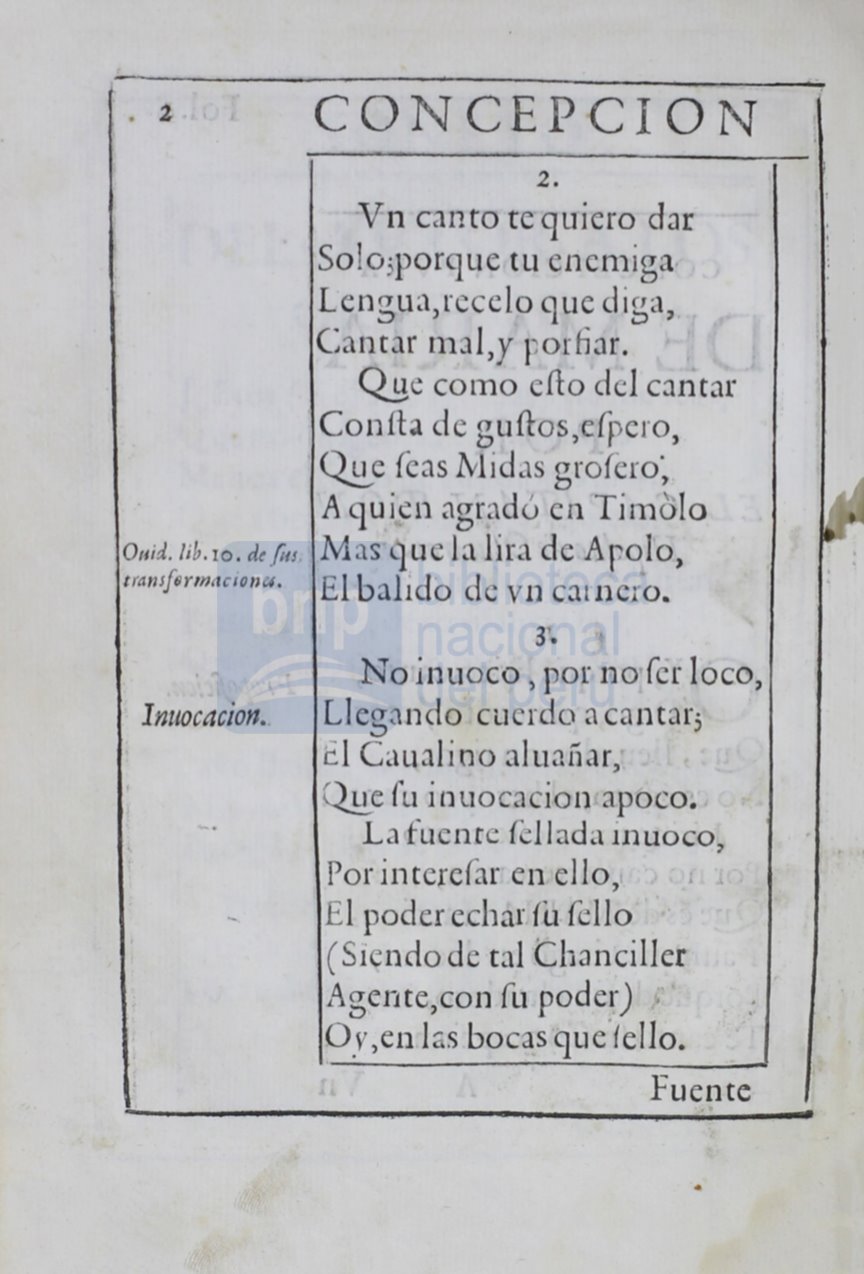 2 CONCEPCION
2.
Vn canto te quiero dar
Solo;porque tu enemiga
Lengua,recelo que diga,
Cantar mal,y porfiar.
Que como eſto del cantar
Conſta de guſtos,eſpero,
Que ſeas Midas groſero;
A quien agradò en Timòlo
Ouid. lib.10. de ſus
transformaciones.
Mas que la lira de Apolo,
El balido de vn carnero.
3.
No inuoco, por no ſer loco,
Inuocacion.
Llegando cuerdo a cantar;
El Caualino aluañar,
Que ſu inuocacion apoco.
La fuente ſellada inuoco,
Por intereſar en ello,
El poder echar ſu ſello
(Siendo de tal Chanciller
Agente,con ſu poder)
Oy,en las bocas que ſello.
Fuente
bnp biblioteca
nacional
del perú